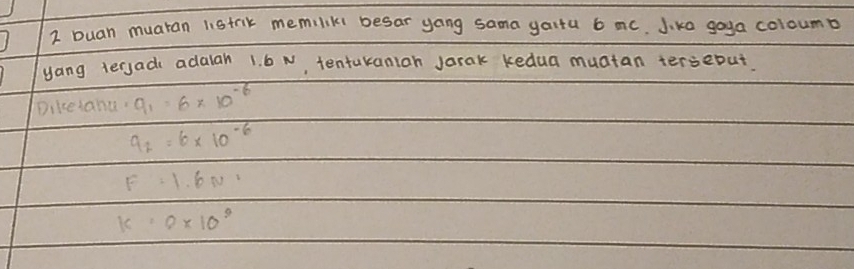 2 buah muatan listrik memiliki besar yang sama yaitu 6 mc. Jika gaya coloumb
yang terjadi adalah 1.6 N, tentukanlah jarak kedua muatan tersebut.
Diketahui : q₁ = 6 × 10⁻⁶
q₂ = 6 × 10⁻⁶
F = 1.6 N
K = 9 × 10⁹